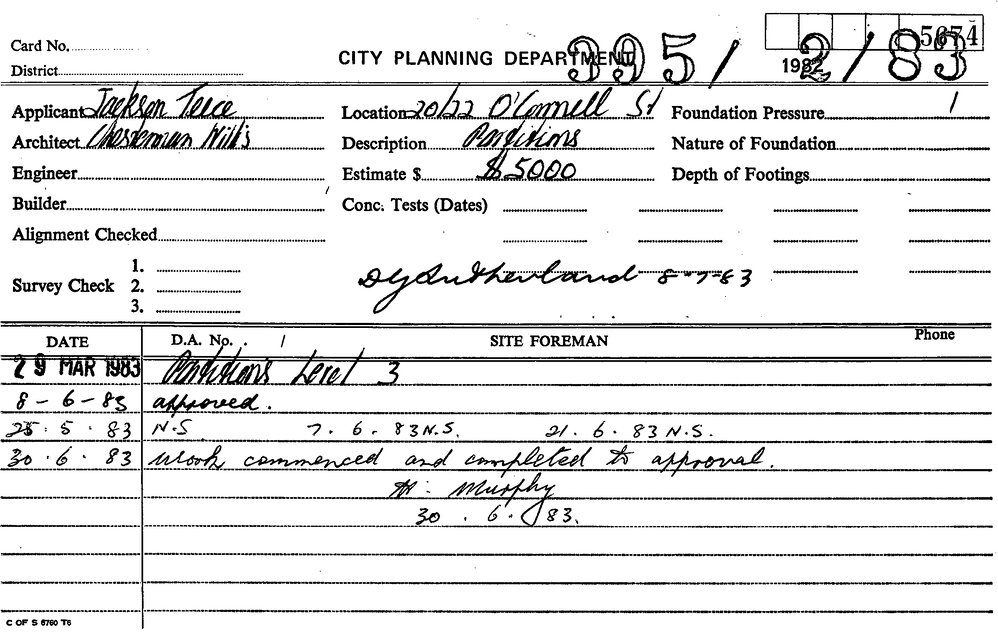 5674
Card No.
CITY PLANNING DEPARTMENT 395/2/83
1982
District
Applicant Jackson Teece Location 20/22 O'Connell St Foundation Pressure
Architect Chesterman Willis Description Partitions Nature of Foundation
Engineer Estimate $ $5000 Depth of Footings
Builder Conc. Tests (Dates)
Alignment Checked
Survey Check 1.
2.
3.
DG Sutherland 8-7-83
DATE D.A. No. / SITE FOREMAN Phone
29 MAR 1983 Partitions Level 3
8-6-83 approved.
25.5.83 N.S 7.6.83 N.S. 21.6.83 N.S.
30.6.83 work commenced and completed to approval.
Murphy
30.6.83.
C OF S 6760 T6